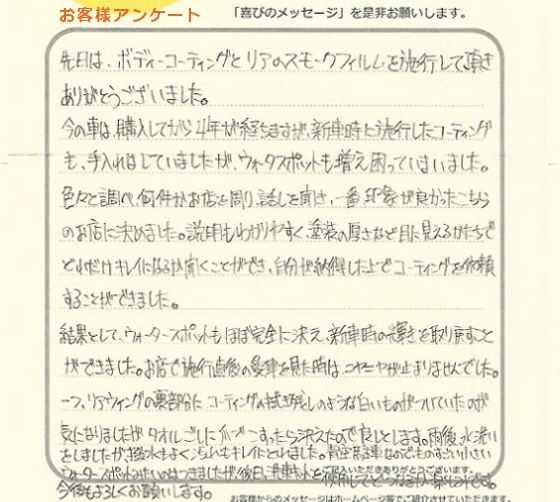 お客様アンケート 「喜びのメッセージ」を是非お願いします。
先日は、ボディーコーティングとリアのスモークフィルムを施行して頂き
ありがとうございました。
今の車は、購入してから4年が経ちますが、新車時に施行したコーティング
も、手入れはしていましたが、ウォータスポットも増え困っていまいました。
色々と調べ、何件かお店を周り、話しを聞き、一番印象が良かったこちら
のお店に決めました。説明もわかりやすく塗装の厚さなど目に見えるかたちで
どれだけキレイになるか聞くことができ、自分が納得した上でコーティングを依頼
することができました。
結果として、ウォータースポットもほぼ完全に消え、新車時の輝きを取り戻すこと
ができました。お店で施行直後の愛車を見た時は、ニヤニヤが止まりませんでした。
一つ、リアウィングの裏部分にコーティングの拭き残しのような白いものがついていたのが
気になりましたがタオルでこすったら消えたので良しとします。雨後、水洗い
をしましたが撥水もよく
ウォータースポットみたいのはつきましたが、後日に
ご記入いただきありがとうございました。
今後もよろしくお願いします。
お客様からのメッセージはホームページ等でご紹介させていただきます。